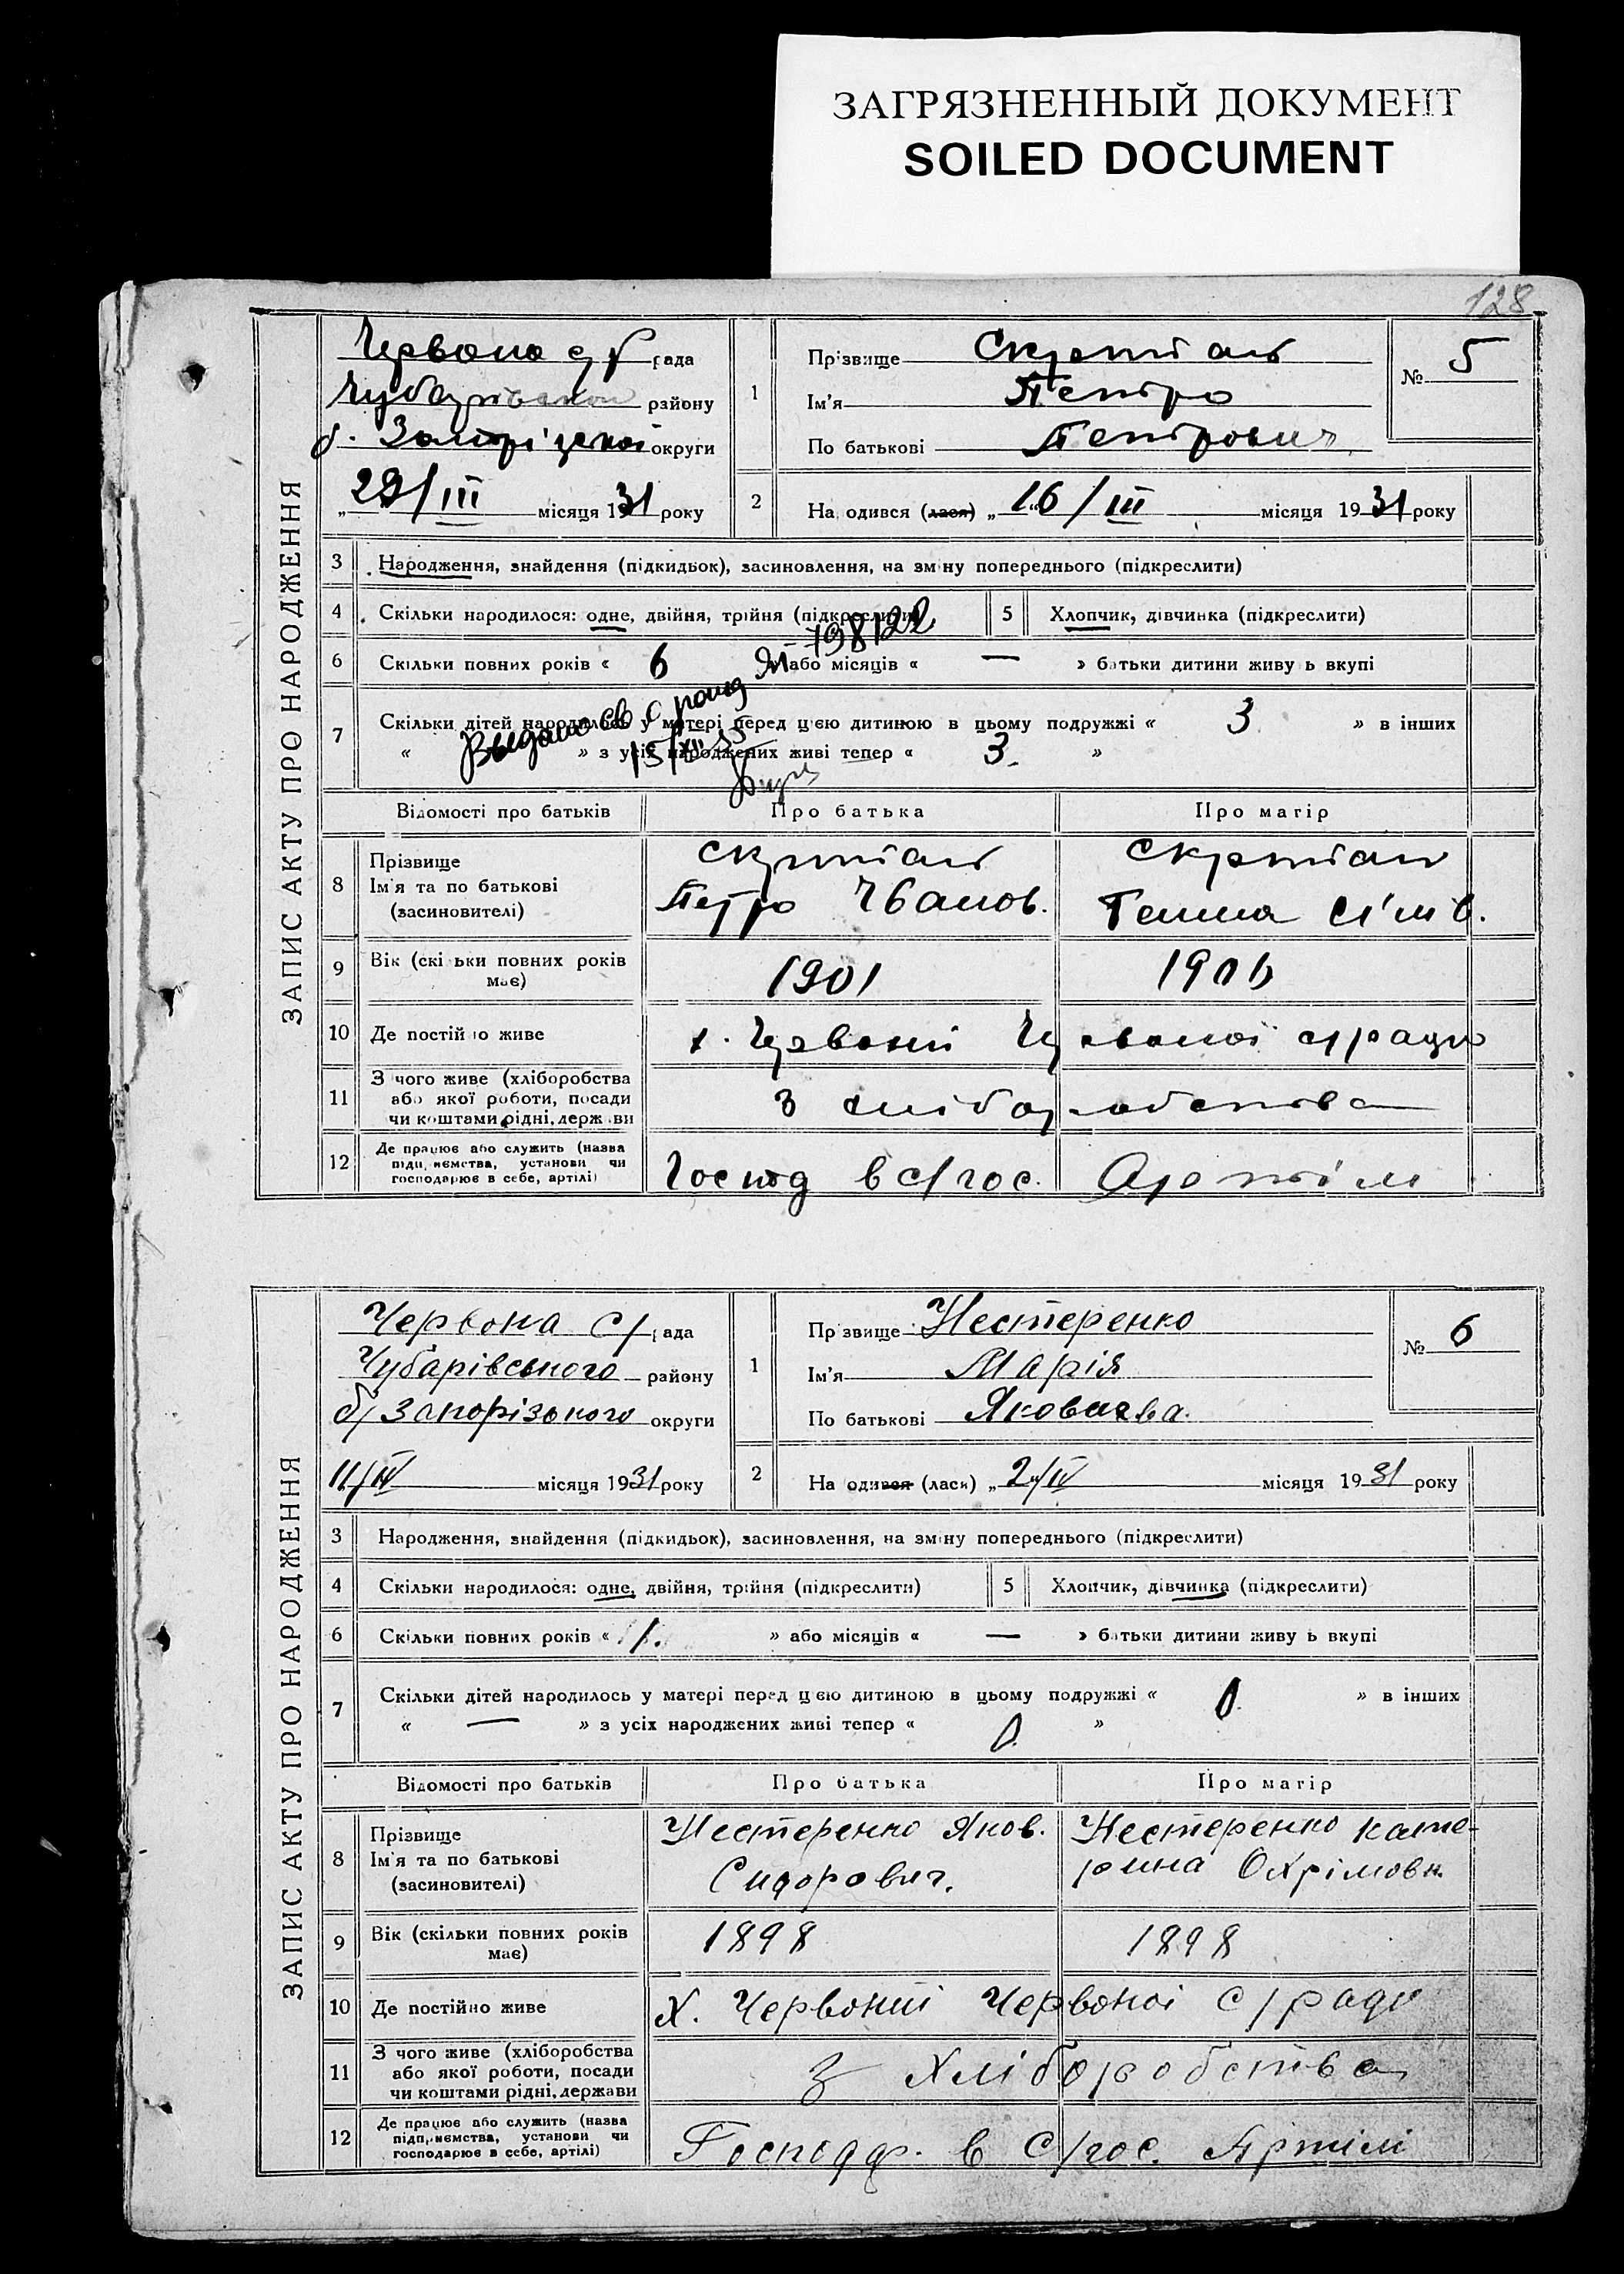 ЗАГРЯЗНЕННЫЙ ДОКУМЕНТ
SOILED DOCUMENT
128
ЗАПИС АКТУ ПРО НАРОДЖЕННЯ
Червона с/ рада
району
б. округи
29/III місяця 1931 року
1
Прізвище
Ім'я Петро
По батькові Петрович
№ 5
2 На одився (лася) „16/III місяця 1931 року
3 Народження, знайдення (підкидьок), засиновлення, на зміну попереднього (підкреслити)
4 Скільки народилося: одне, двійня, трійня (підкреслити)
5 Хлопчик, дівчинка (підкреслити)
6 Скільки повних років « 6 » або місяців « — » батьки дитини живу ь вкупі
798122
7 Скільки дітей народилось у матері перед цією дитиною в цьому подружжі « 3 » в інших
« » з усіх народжених живі тепер « 3. »
Відомості про батьків Про батька Про матір
8 Прізвище
Ім'я та по батькові Петро Іванов. Ганна
(засиновителі)
9 Вік (скі ьки повних років має) 1901 1906
10 Де постійно живе х. Червоний Червоної с/ради
11 З чого живе (хліборобства
або якої роботи, посади
чи коштами рідні, держави З хліборобства
12 Де працює або служить (назва
підприємства, установи чи
господарює в себе, артілі) Господ в с/гос. Артілі
ЗАПИС АКТУ ПРО НАРОДЖЕННЯ
Червона С/ рада
Чубарівського району
б/ Запорізького округи
11/IV місяця 1931 року
1
Прізвище Нестеренко
Ім'я Марія
По батькові Яковлева.
№ 6
2 На одився (лася) „2/IV місяця 1931 року
3 Народження, знайдення (підкидьок), засиновлення, на зміну попереднього (підкреслити)
4 Скільки народилося: одне, двійня, трійня (підкреслити)
5 Хлопчик, дівчинка (підкреслити)
6 Скільки повних років « 1. » або місяців « — » батьки дитини живу ь вкупі
7 Скільки дітей народилось у матері перед цією дитиною в цьому подружжі « 0. » в інших
« — » з усіх народжених живі тепер « 0. »
Відомості про батьків Про батька Про матір
8 Прізвище Нестеренко Яков. Нестеренко Кате-
Ім'я та по батькові Сидорович. рина Охрімовн.
(засиновителі)
9 Вік (скільки повних років має) 1898 1898
10 Де постійно живе Х. Червоний Червоної С/ради
11 З чого живе (хліборобства
або якої роботи, посади
чи коштами рідні, держави З Хліборобства
12 Де працює або служить (назва
підприємства, установи чи
господарює в себе, артілі) Господр. в С/гос. Артілі